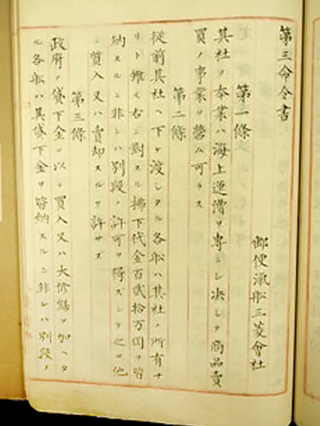 第三命令書
郵便汽船三菱會社
第一條
其社ノ本業ハ海上運漕ヲ專ニシ决シテ商品賣
買ノ事業ヲ營ム可ラス
第二條
從前其社ヘ下ケ渡シタル各舩ハ其社ノ所有タ
リト雖モ右ニ對スル拂下代金百貳拾万圓ヲ皆
納スルニ非レハ別段ノ許可ヲ得スシテ之ヲ他
ニ質入又ハ賣却スルヲ許サス
第三條
政府ノ貸下金ヲ以テ買入又ハ大修繕ヲ加ヘタ
ル各舩ハ其貸下金ヲ皆納スルニ非レハ別段ノ